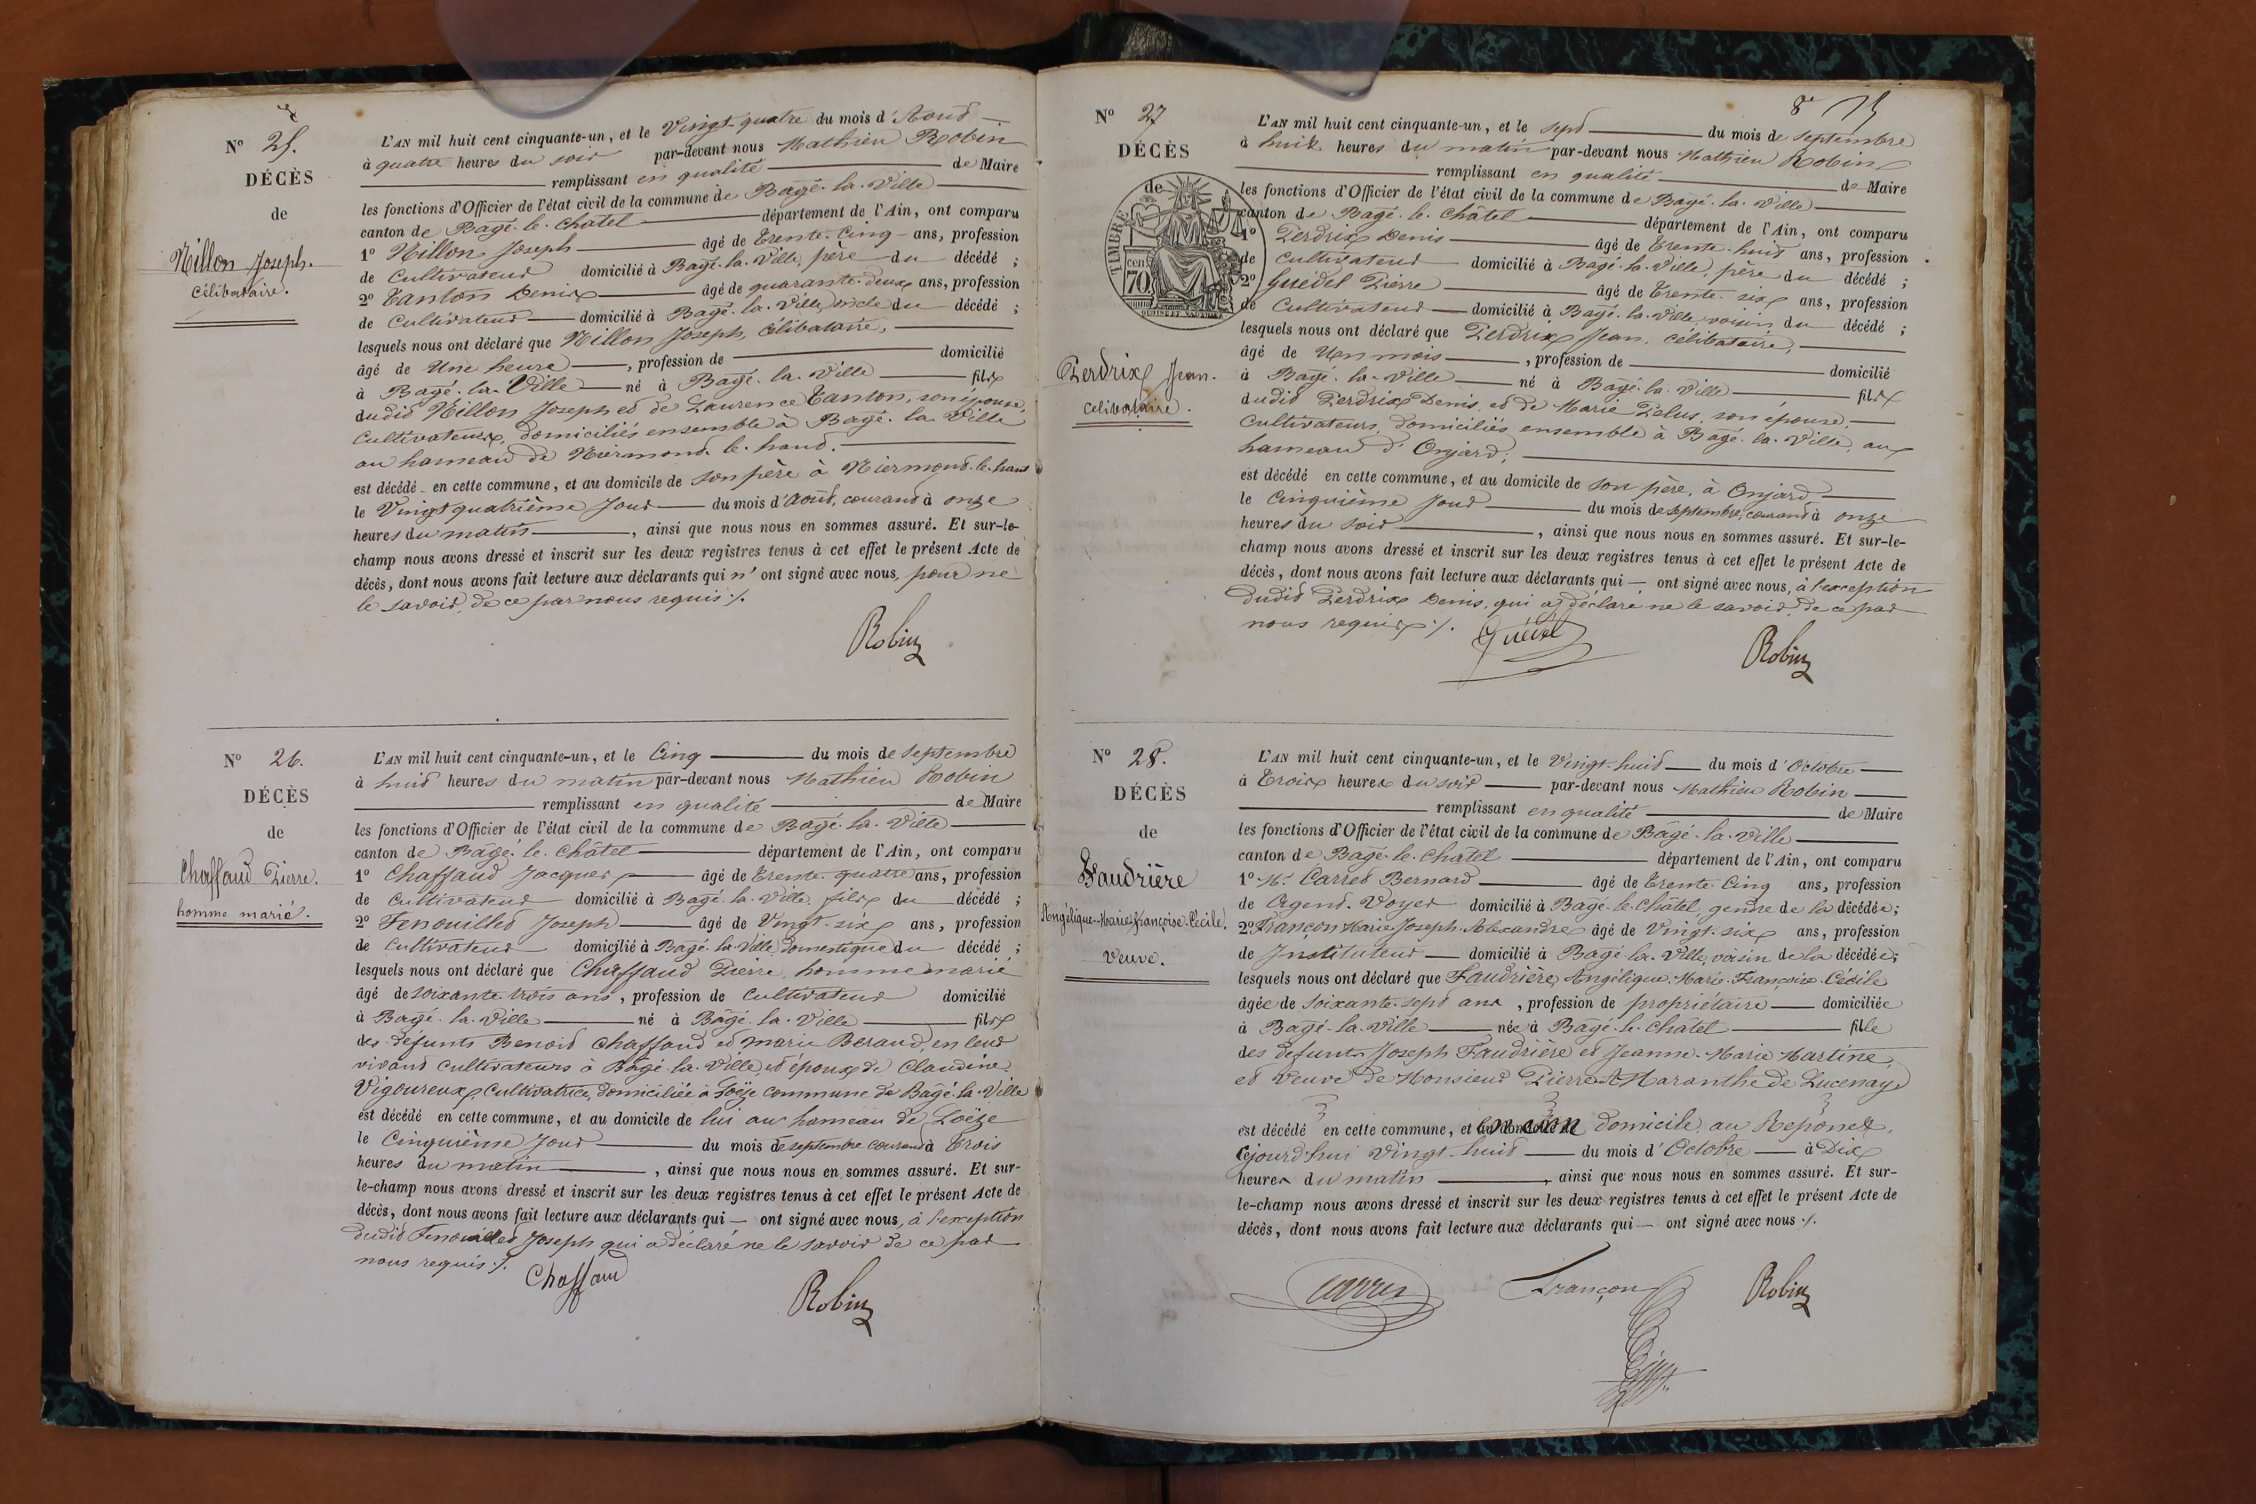 N° 25.
DÉCÈS
de
Millon Joseph.
célibataire.
L'AN mil huit cent cinquante-un, et le Vingt-quatre du mois d'Août
à quatre heures du soir par-devant nous Mathieu Robin
remplissant en qualité de Maire
les fonctions d'Officier de l'état civil de la commune de Bagé-la-Ville
canton de Bagé-le-Châtel département de l'Ain, ont comparu
1° Millon Joseph âgé de Trente-Cinq ans, profession
de Cultivateur domicilié à Bagé-la-Ville, père du décédé ;
2° Tanton Denis âgé de quarante-deux ans, profession
de Cultivateur domicilié à Bagé-la-Ville, oncle du décédé ;
lesquels nous ont déclaré que Millon Joseph, célibataire,
âgé de Une heure, profession de domicilié
à Bagé-la-Ville né à Bagé-la-Ville fils
dudit Millon Joseph et de Laurence Tanton, son épouse,
Cultivateurs, domiciliés ensemble à Bagé-la-Ville
au hameau de Miermond-le-haut.
est décédé en cette commune, et au domicile de son père à Miermond-le-haut
le Vingt quatrième Jour du mois d'Août, courant à onze
heures du matin, ainsi que nous nous en sommes assuré. Et sur-le-
champ nous avons dressé et inscrit sur les deux registres tenus à cet effet le présent Acte de
décès, dont nous avons fait lecture aux déclarants qui n'ont signé avec nous, pour ne
le savoir, de ce par nous requis ./.
Robin
N° 26.
DÉCÈS
de
Chaffaud Pierre.
homme marié.
L'AN mil huit cent cinquante-un, et le Cinq du mois de septembre
à huit heures du matin par-devant nous Mathieu Robin
remplissant en qualité de Maire
les fonctions d'Officier de l'état civil de la commune de Bagé-la-Ville
canton de Bâgé-le-Châtel département de l'Ain, ont comparu
1° Chaffaud Jacques âgé de Trente-quatre ans, profession
de Cultivateur domicilié à Bagé-la-Ville, fils du décédé ;
2° Fenouillet Joseph âgé de Vingt-six ans, profession
de Cultivateur domicilié à Bagé-la-Ville, domestique du décédé ;
lesquels nous ont déclaré que Chaffaud Pierre, homme marié
âgé de soixante-trois ans, profession de Cultivateur domicilié
à Bagé-la-Ville né à Bâgé-la-Ville fils
des défunts Benoit Chaffaud et Marie Beraud, en leur
vivant cultivateurs à Bagé-la-Ville, et époux de Claudine
Vigoureux, Cultivatrice, domiciliée à Loëze commune de Bagé-la-Ville
est décédé en cette commune, et au domicile de lui au hameau de Loëze
le Cinquième Jour du mois de septembre courant à Trois
heures du matin, ainsi que nous nous en sommes assuré. Et sur-
le-champ nous avons dressé et inscrit sur les deux registres tenus à cet effet le présent Acte de
décès, dont nous avons fait lecture aux déclarants qui ont signé avec nous, à l'exception
dudit Fenouillet Joseph qui a déclaré ne le savoir de ce par
nous requis ./.
Chaffaud
Robin
8e
N° 27
DÉCÈS
de
TIMBRE
70 cent
Perdrix Jean.
célibataire.
L'AN mil huit cent cinquante-un, et le sept du mois de septembre
à huit heures du matin par-devant nous Mathieu Robin
remplissant en qualité de Maire
les fonctions d'Officier de l'état civil de la commune de Bagé-la-Ville
canton de Bagé-le-Châtel département de l'Ain, ont comparu
1° Perdrix Denis âgé de Trente-huit ans, profession
de Cultivateur domicilié à Bagé-la-Ville, père du décédé ;
2° Guédel Pierre âgé de Trente-six ans, profession
de Cultivateur domicilié à Bagé-la-Ville, voisin du décédé ;
lesquels nous ont déclaré que Perdrix Jean, célibataire,
âgé de Un mois, profession de domicilié
à Bagé-la-Ville né à Bagé-la-Ville fils
dudit Perdrix Denis, et de Marie Palus, son épouse,
Cultivateurs, domiciliés ensemble à Bagé-la-Ville, au
hameau d'Onjard ;
est décédé en cette commune, et au domicile de son père, à Onjard,
le Cinquième Jour du mois de septembre, courant à onze
heures du soir, ainsi que nous nous en sommes assuré. Et sur-le-
champ nous avons dressé et inscrit sur les deux registres tenus à cet effet le présent Acte de
décès, dont nous avons fait lecture aux déclarants qui ont signé avec nous, à l'exception
dudit Perdrix Denis, qui a déclaré ne le savoir de ce par
nous requis ./.
Guédel
Robin
N° 28.
DÉCÈS
de
Faudrière
Angélique-Marie-Françoise-Cécile.
Veuve.
L'AN mil huit cent cinquante-un, et le Vingt-huit du mois d'Octobre
à Trois heures du soir par-devant nous Mathieu Robin
remplissant en qualité de Maire
les fonctions d'Officier de l'état civil de la commune de Bâgé-la-Ville
canton de Bagé-le-Châtel département de l'Ain, ont comparu
1° Mr Carred Bernard âgé de Trente-Cinq ans, profession
de Agent-Voyer domicilié à Bagé-le-Châtel, gendre de la décédée ;
2° Françon Marie-Joseph-Alexandre âgé de Vingt-six ans, profession
de Instituteur domicilié à Bagé-la-Ville, voisin de la décédée ;
lesquels nous ont déclaré que Faudrière, Angélique-Marie-Françoise-Cécile
âgée de soixante-sept ans, profession de propriétaire domiciliée
à Bagé-la-Ville née à Bagé-le-Châtel fille
des défunts Joseph Faudrière et Jeanne-Marie Martine,
et veuve de Monsieur Pierre Amaranthe de Lucenay
est décédé en cette commune, et en son domicile, au Reponet,
Cejourd'hui Vingt-huit du mois d'Octobre à Dix
heures du matin, ainsi que nous nous en sommes assuré. Et sur-
le-champ nous avons dressé et inscrit sur les deux registres tenus à cet effet le présent Acte de
décès, dont nous avons fait lecture aux déclarants qui ont signé avec nous ./.
Carred
Françon
Robin